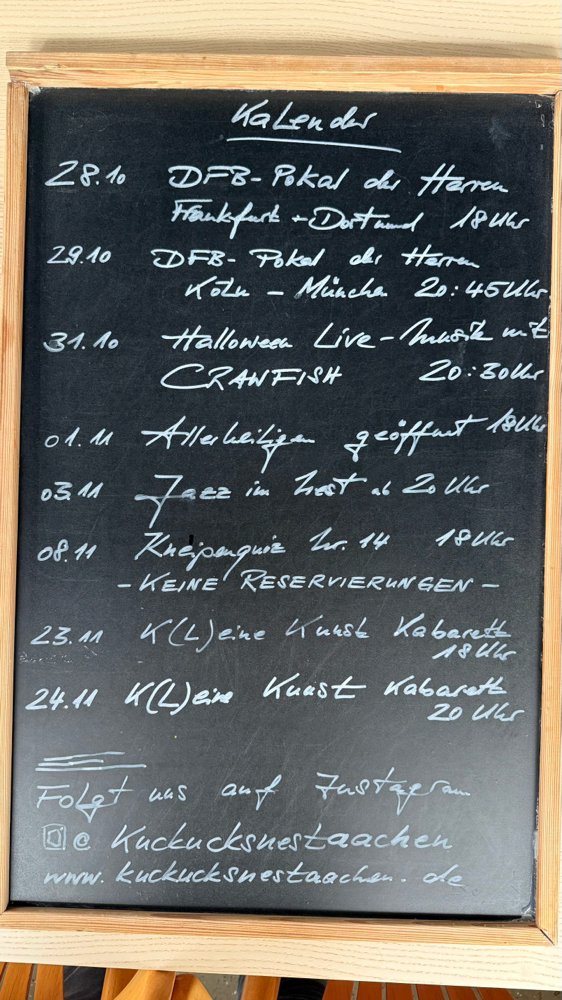 Kalender
28.10 DFB-Pokal der Herren
Frankfurt - Dortmund 18Uhr
29.10 DFB-Pokal der Herren
Köln - München 20:45Uhr
31.10 Halloween Live-Musik mit
CRAWFISH 20:30Uhr
01.11 Allerheiligen geöffnet 18Uhr
03.11 Jazz im Nest ab 20Uhr
08.11 Kneipenquiz Nr. 14 18Uhr
- KEINE RESERVIERUNGEN -
23.11 K(L)eine Kunst Kabarett
18Uhr
24.11 K(L)eine Kunst Kabarett
20Uhr
Folgt uns auf Instagram
@ Kuckucksnestaachen
www.kuckucksnestaachen.de